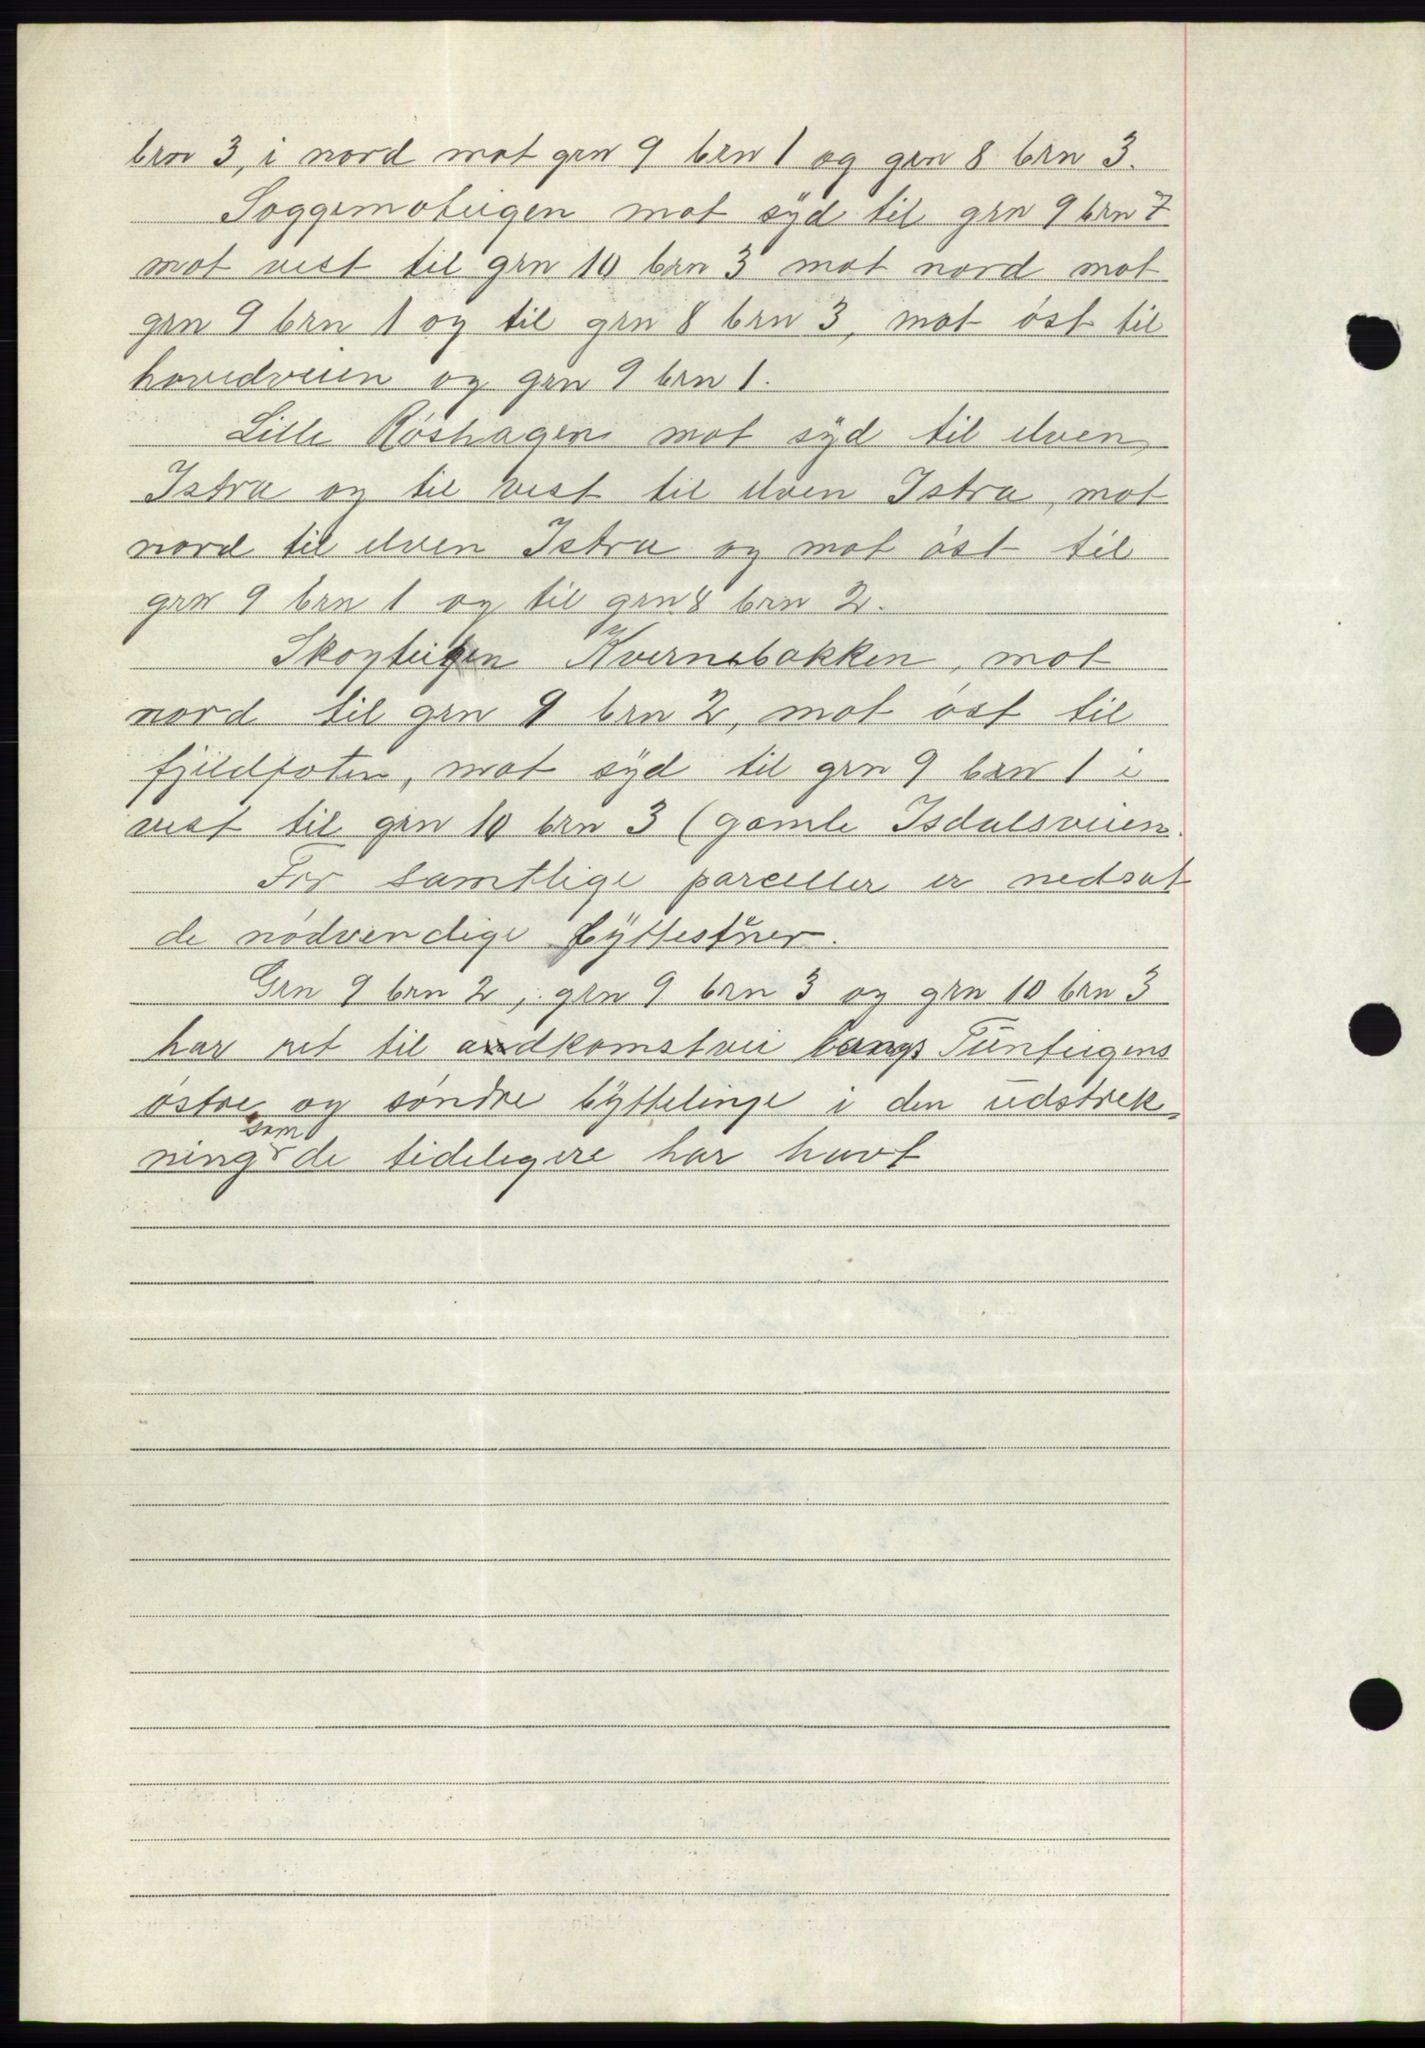 brn 3, i nord mot grn 9 brn 1 og grn 8 brn 3.
Soggemoteigen mot syd til grn 9 brn 7
mot vest til grn 10 brn 3 mot nord mot
grn 9 brn 1 og til grn 8 brn 3, mot öst til
hovedveien og grn 9 brn 1.
Lille Röshagen mot syd til elven
Istra og til vest til elven Istra, mot
nord til elven Istra og mot öst til
grn 9 brn 1 og til grn 8 brn 2.
Skogteigen Kvernbakken, mot
nord til grn 9 brn 2, mot öst til
fjeldfoten, mot syd til grn 9 brn 1 i
vest til grn 10 brn 3 (gamle Isdalsveien.
For samtlige parceller er nedsat
de nödvendige byttestener.
Grn 9 brn 2, grn 9 brn 3 og grn 10 brn 3
har ret til adkomstvei langs Tunteigens
östre og söndre byttelinje i den udstrek=
ning som de tideligere har havt